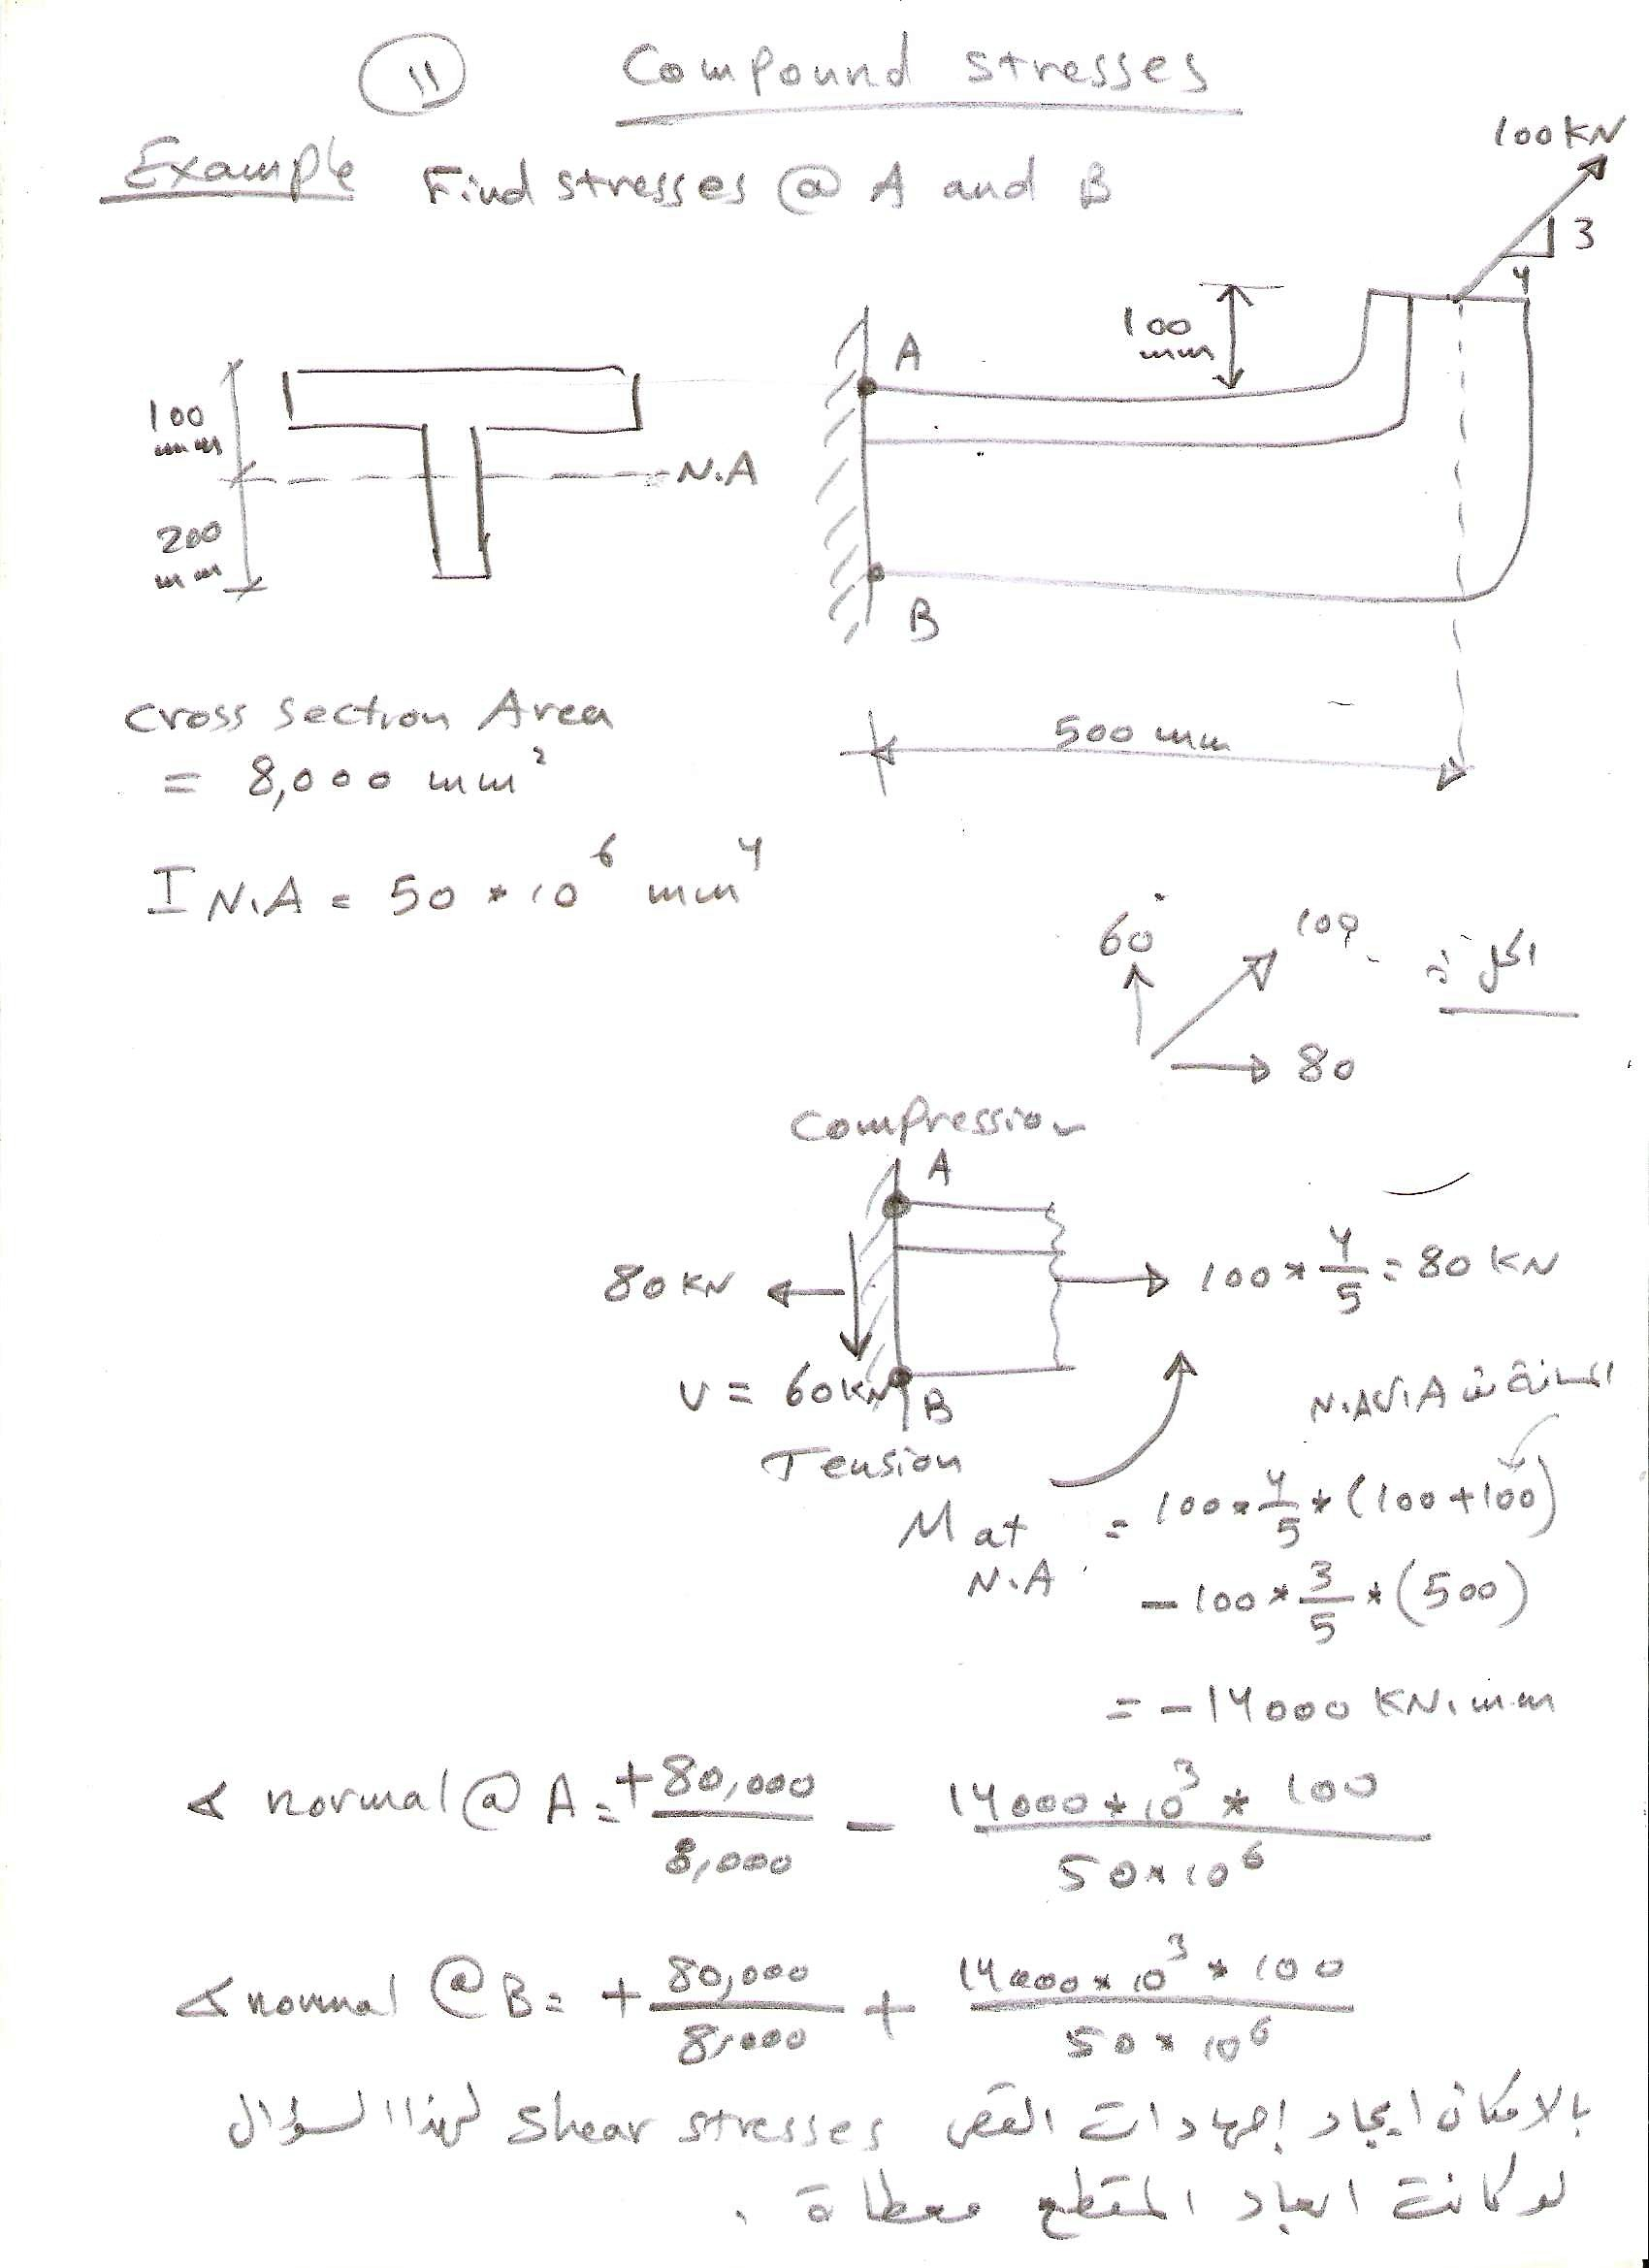 11 Compound stresses
Example Find stresses @ A and B
100 KN
3
4
100 mm
A
100 mm
N.A
200 mm
B
500 mm
Cross section Area
= 8,000 mm²
I N.A = 50 * 10⁶ mm⁴
60 100
80
Compression
A
80 KN 100 * 4/5 = 80 KN
V = 60KN
B
Tension
M at N.A = 100 * 4/5 * (100 + 100)
- 100 * 3/5 * (500)
= - 14000 KN.mm
normal @ A = + 80,000/8,000 - 14000 * 10³ * 100 / 50 * 10⁶
normal @ B = + 80,000/8,000 + 14000 * 10³ * 100 / 50 * 10⁶
بالامكان ايجاد إجهادات القص shear stresses لهذا السؤال
لو كانت ابعاد المقطع معطاة .